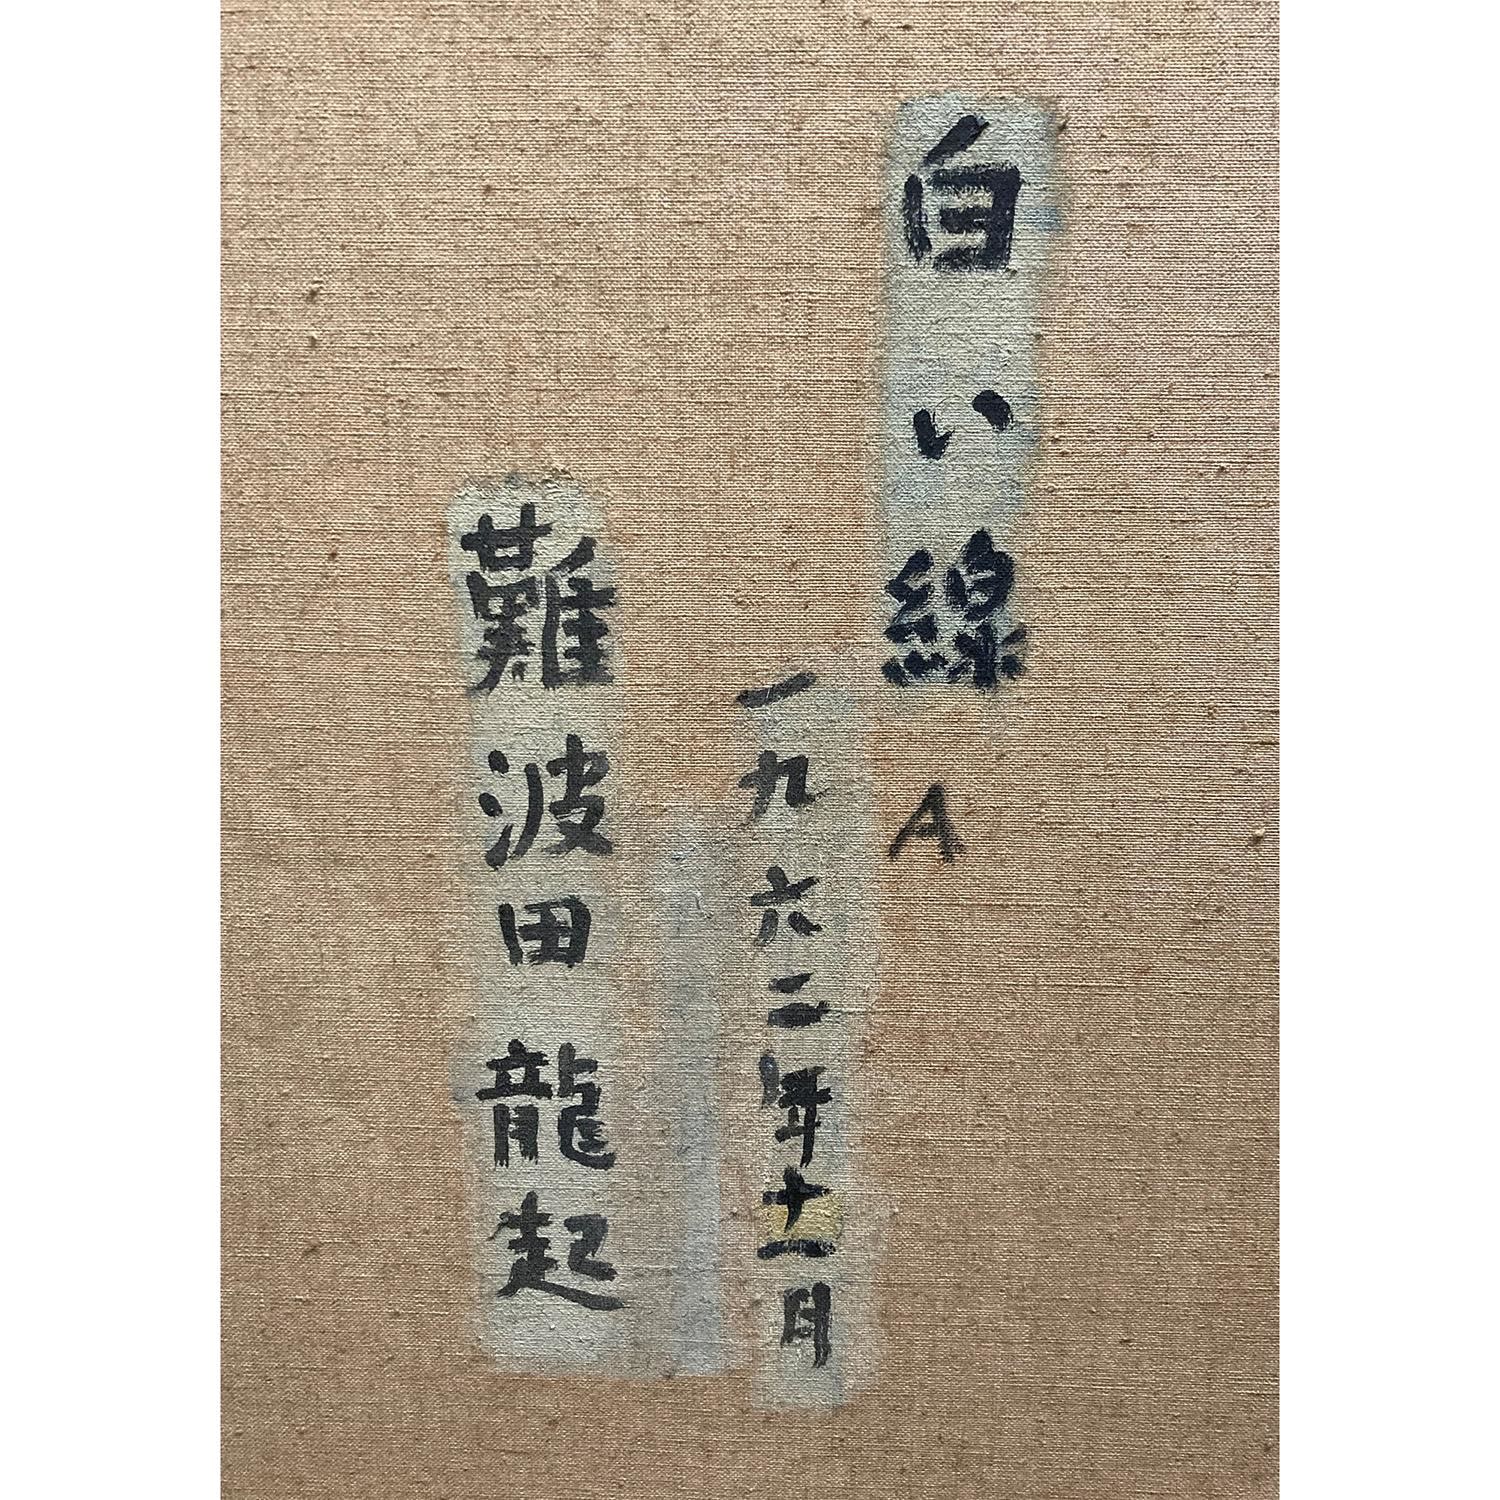 白い線 A
一九六二年十一月
難波田龍起